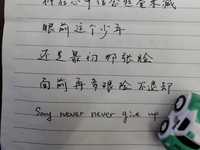 种在心中信念丝毫未减
眼前这个少年
还是最初那张脸
面前再多艰险不退却
Say never never give up